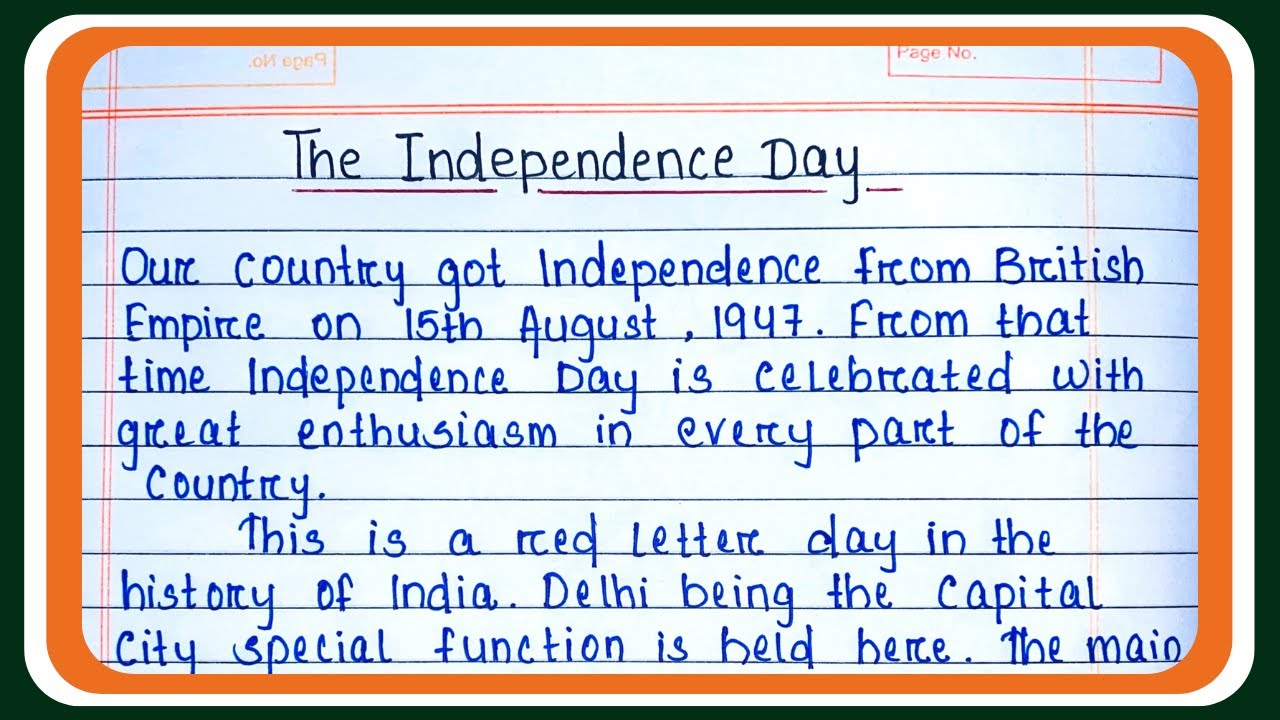 Page No.
Page No.
The Independence Day
Our country got Independence from British
Empire on 15th August, 1947. From that
time Independence Day is celebrated with
great enthusiasm in every part of the
country.
This is a red letter day in the
history of India. Delhi being the capital
city special function is held here. The main